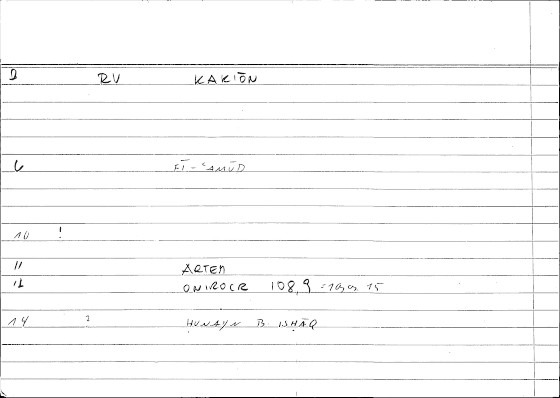 2 RV KARIŌN
6 FĪ-ʿAMŪD
10 !
11 ARTEM
12 ONIROCR 108,9 -
14 ? ḤUNAYN B. ISḤĀQ